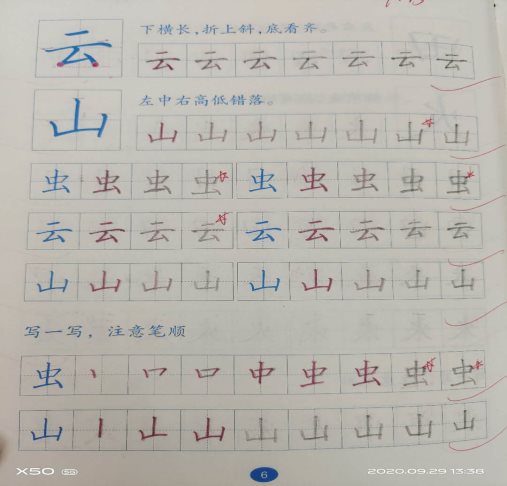 云 下横长,折上斜,底看齐。
云 云 云 云 云 云 云
山 左中右高低错落。
山 山 山 山 山 山 山
虫 虫 虫 虫 虫 虫 虫 虫 虫
云 云 云 云 云 云 云 云 云
山 山 山 山 山 山 山 山 山
写一写,注意笔顺
虫 丶 口 口 中 虫 虫 虫 虫
山 丨 山 山 山 山 山 山
X50 5G
6
2020.09.29 13:38